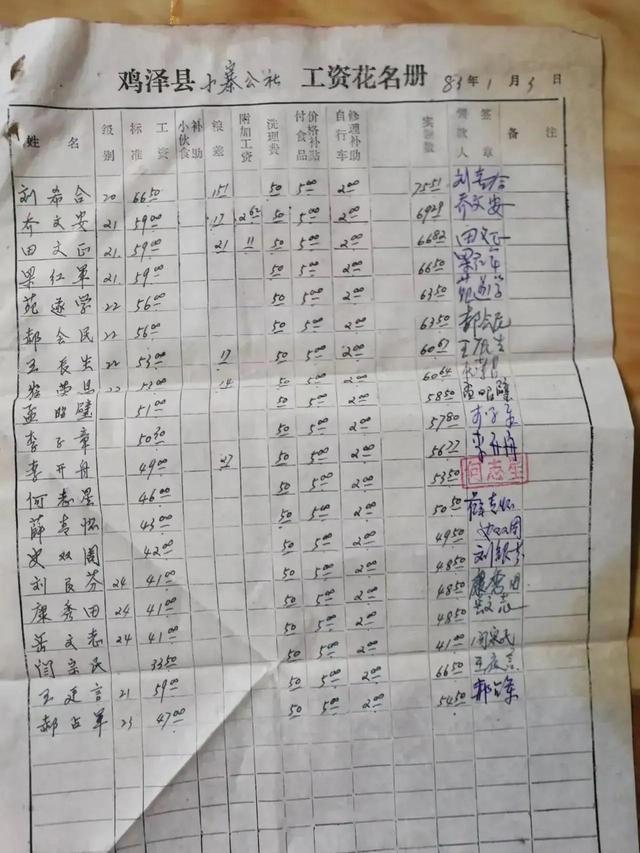 鸡泽县 小寨公社 工资花名册 83年1月3日
姓名 级别 标准工资 小伙食补助 粮差 附加工资 洗理费 付食品价格补贴 自行车修理补助 实发数 领款人签章 备注
刘希合 20 66.50 1.51 50 5.00 2.00 75.51
乔文安 21 59.00 17 2.62 50 5.00 2.00 69.29 乔文安
田文正 21 59.00 21 11 50 5.00 2.00 66.82 田文正
梁红军 21 59.00 50 5.00 2.00 66.50
苑遂学 22 56.00 50 5.00 2.00 63.50
郝会民 22 56.00 50 5.00 2.00 63.50 郝会民
王辰生 22 53.00 17 50 5.00 2.00 60.67 王辰生
22 53.00 14 50 5.00 2.00 60.64
孟昭璧 51.00 50 5.00 2.00 58.50 孟昭璧
李子章 50.30 50 5.00 2.00 57.80
李开舟 49.00 27 50 5.00 2.00 56.77 李开舟
何志星 46.00 50 5.00 2.00 53.50
薛专怀 43.00 50 5.00 2.00 50.50 薛专怀
史双周 42.00 50 5.00 2.00 49.50 史双周
刘 芬 24 41.00 50 5.00 2.00 48.50
康秀田 24 41.00 50 5.00 2.00 48.50 康秀田
岳文志 24 41.00 50 5.00 2.00 48.50 岳文志
闫宗民 33.50 50 5.00 2.00 41.00 闫宗民
王廷言 21 59.00 50 5.00 2.00 66.50 王廷言
郝占军 23 47.00 50 5.00 2.00 54.50 郝占军